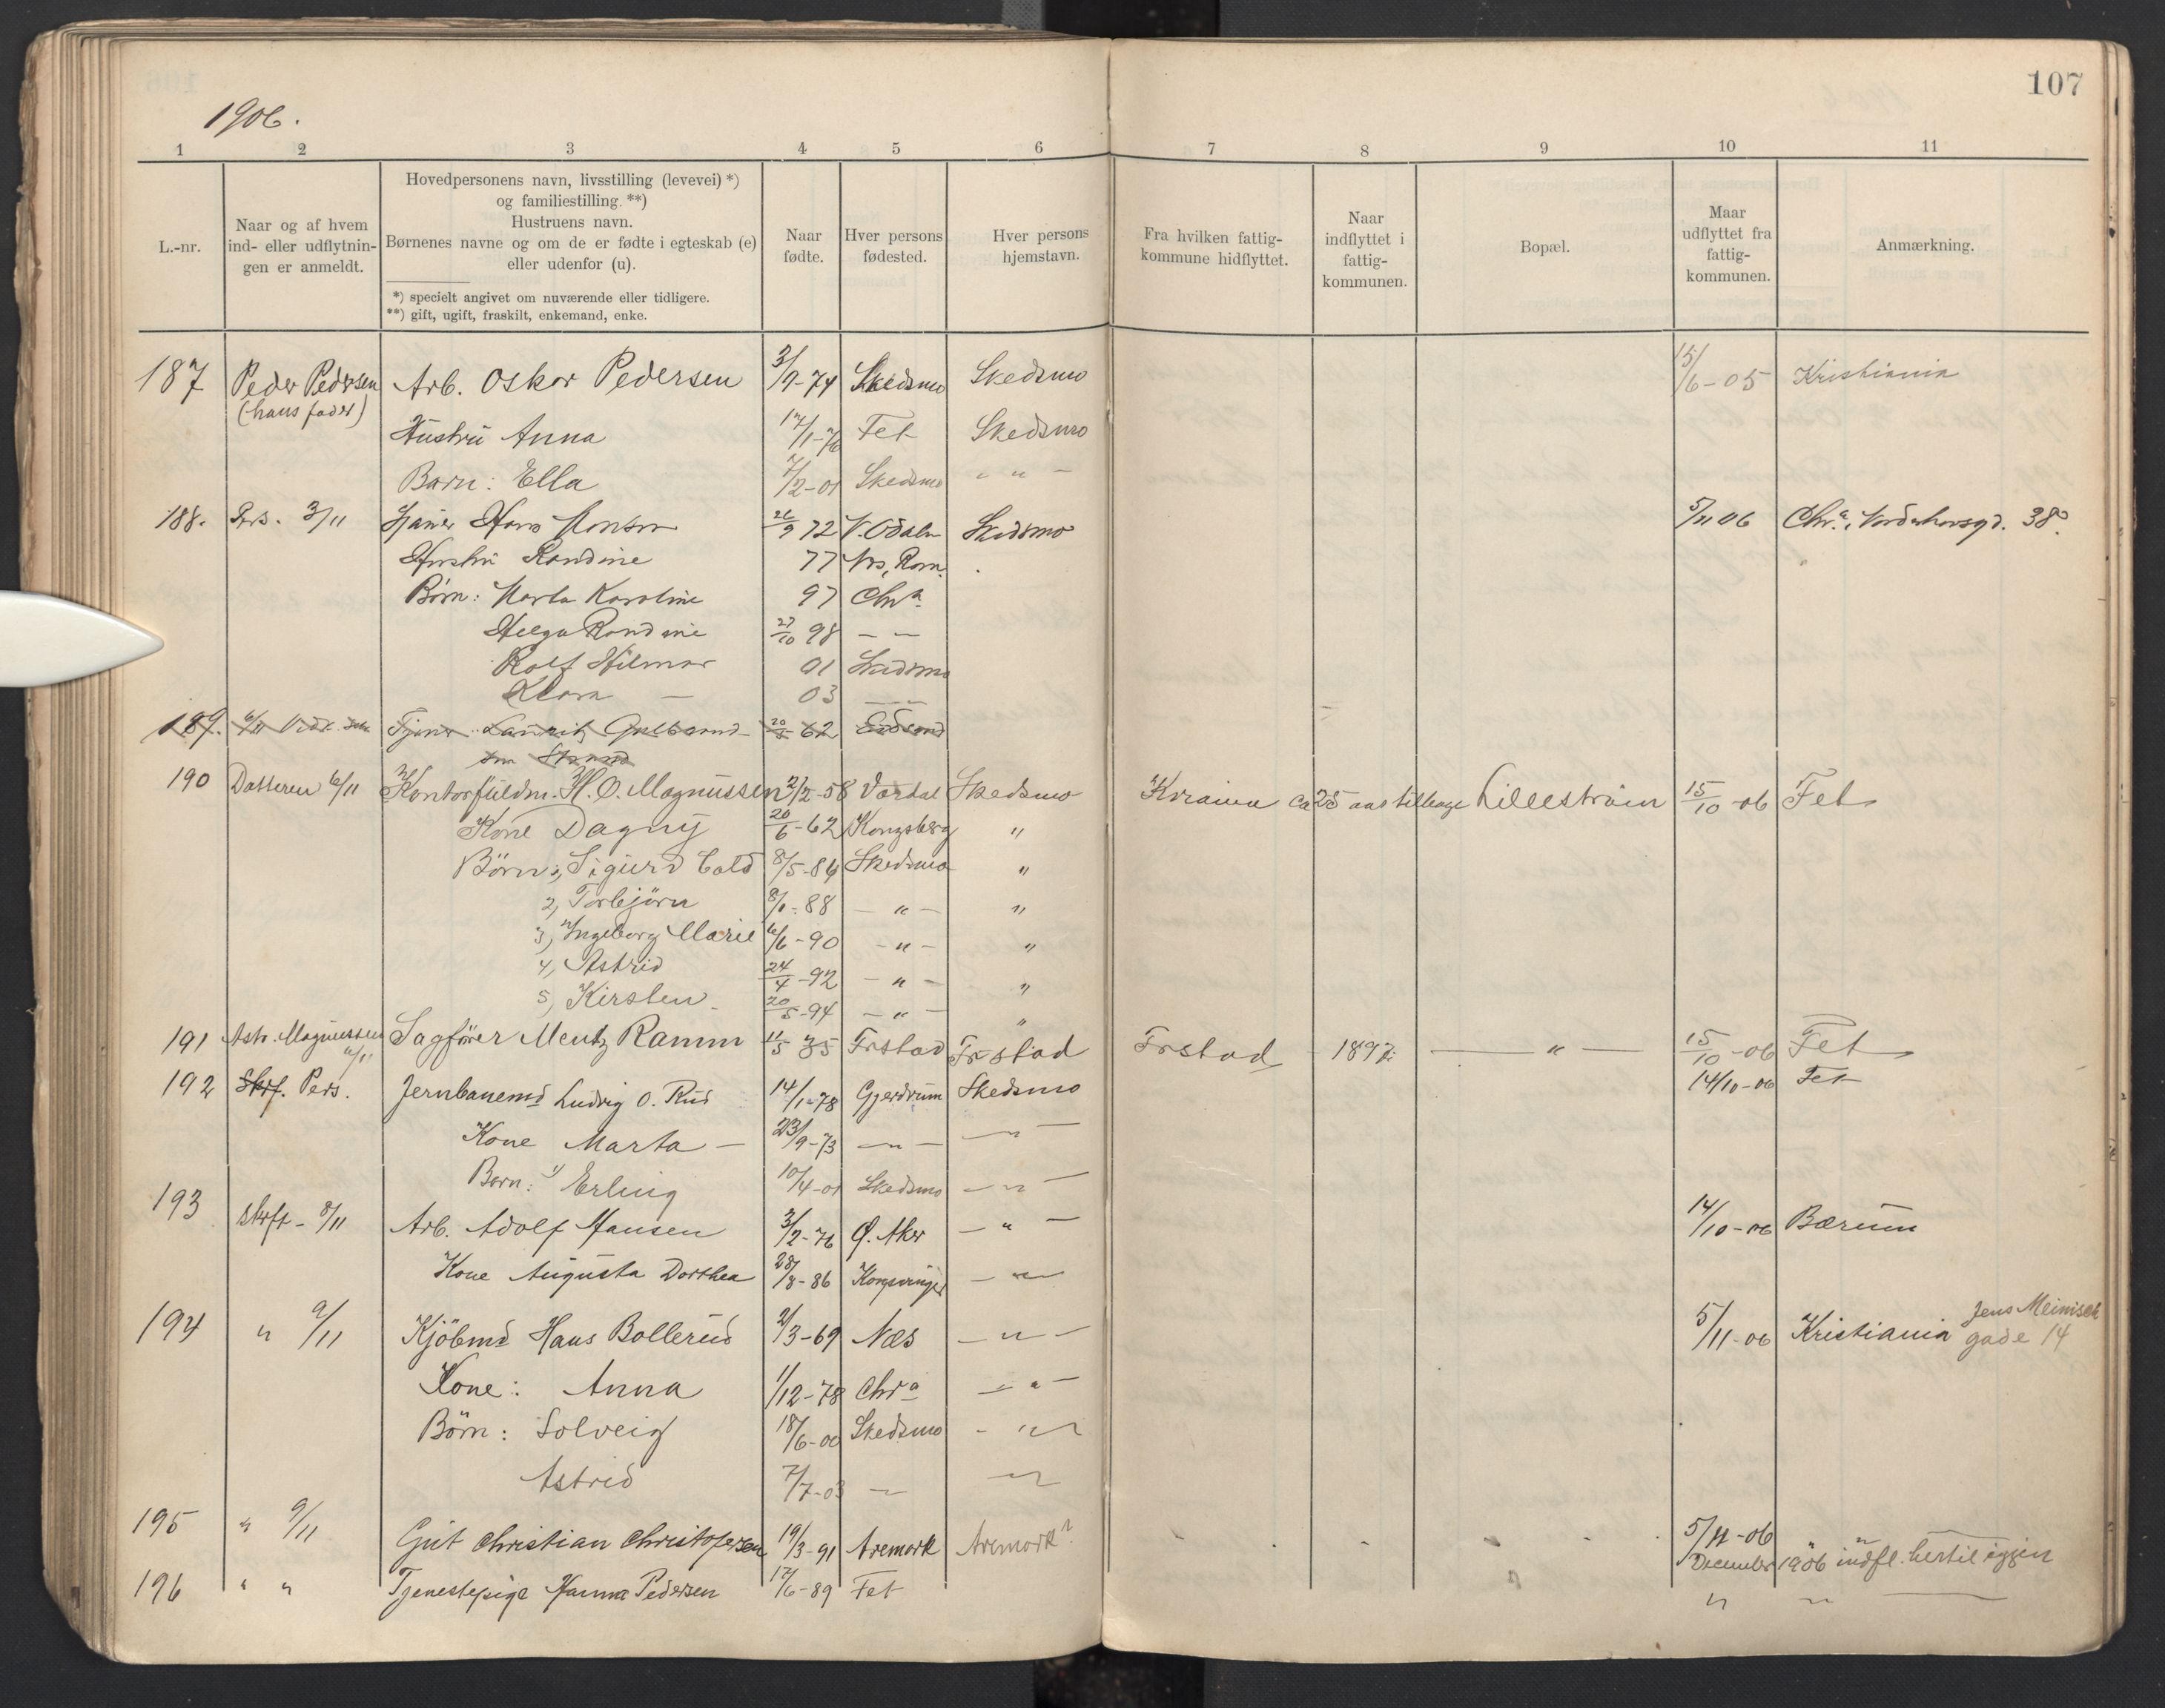 107
1906.
1 2 3 4 5 6 7 8 9 10 11
L.-nr.
Naar og af hvem
ind- eller udflytnin-
gen er anmeldt.
Hovedpersonens navn, livsstilling (levevei) *)
og familiestilling. **)
Hustruens navn.
Børnenes navne og om de er fødte i egteskab (e)
eller udenfor (u).
*) specielt angivet om nuværende eller tidligere.
**) gift, ugift, fraskilt, enkemand, enke.
Naar
fødte.
Hver persons
fødested.
Hver persons
hjemstavn.
Fra hvilken fattig-
kommune hidflyttet.
Naar
indflyttet i
fattig-
kommunen.
Bopæl.
Maar
udflyttet fra
fattig-
kommunen.
Anmærkning.
187 Peder Pedersen Arb. Oskar Pedersen 3/9-74 Skedsmo Skedsmo 15/6-05 Kristiania
(hans fader)
Hustru Anna 17/1-76 Fet Skedsmo
Barn: Ella 7/2-01 Skedsmo - " -
188. Pers. 3/11 Hans 72 V. Odalen Skedsmo 5/11 06 Chr.a, 38
Hustru Randine 77 Rom.
Børn: Marta Karoline 97 Chr.a
Helga Randine 27/10 98 - -
Rolf Hilmar 01 Skedsmo
Klara - 03 - -
189. 6/11 Tjener Lauritz Gulbrand- 62 Eidsvold
sen Strand
190 Datteren 6/11 Kontorfuldm. H. O. Magnussen 2/2-58 Værdal Skedsmo ca 25 aar tilbage Lilleström 15/10-06 Fet
Kone Dagny 20/6-62 Kongsberg "
Börn: 1, Sigurd Cold 8/5-84 Skedsmo "
2, Torbjörn 8/1-88 - " - "
3, Ingeborg Marie 6/6-90 - " - "
4, Astrid 24/4-92 - " - "
5, Kirsten 20/5-94 - " - "
191 Astr. Magnussen Sagförer Mentz Ramm 11/5 35 Frstad Frstad Frstad 1897 - " - 15/10-06 Fet
6/11
192 Skrf. Pers. Jernbanemd Ludvig O. Rud 14/1-78 Gjerdrum Skedsmo 14/10-06 Fet
Kone Marta - 23/9-73 - " - - " -
Barn: 1) Erling 10/4-01 Skedsmo - " -
193 Skrft - 8/11 Arb. Adolf Hansen 3/2-76 Ø. Aker - " - 14/10-06 Bærum
Kone Augusta Dorthea 28/8-86 Kongsvinger - " -
194 " 9/11 Kjöbmd Hans Bollerud 2/3-69 Næs - " - 5/11-06 Kristiania Jens
gade 14
Kone: Anna 1/12-78 Chr.a - " -
Börn: Solveig 18/6-00 Skedsmo - " -
Astrid 7/7-03 - " - "
195 " 9/11 Gut Christian Christofersen 19/3-91 Aremark Aremark? 5/11-06
December 1906 indfl. hertil igjen
196 " " Tjenestepige Hanna Pedersen 17/6-89 Fet " "